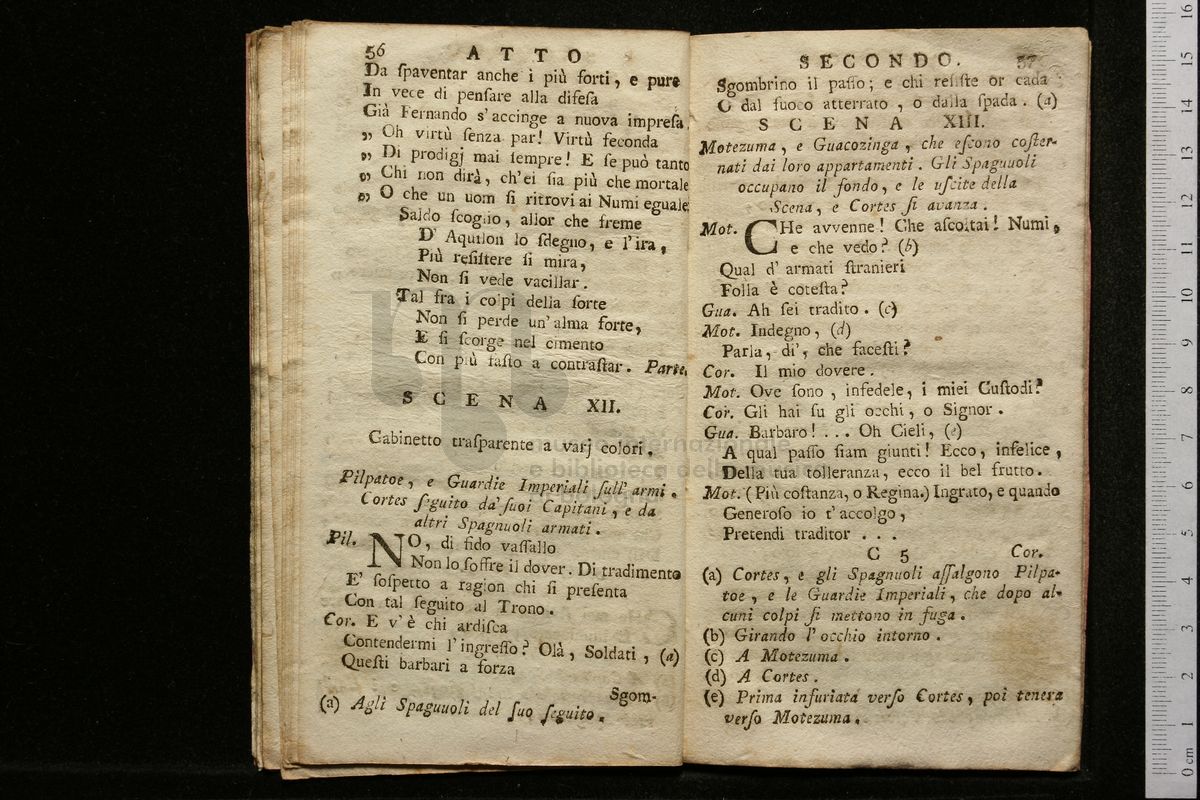 56 ATTO
Da ſpaventar anche i più forti, e pure
In vece di penſare alla difeſa
Già Fernando s'accinge a nuova impreſa.
„ Oh virtù ſenza par! Virtù feconda
„ Di prodigj mai ſempre! E ſe può tanto
„ Chi non dirà, ch'ei ſia più che mortale
„ O che un uom ſi ritrovi ai Numi eguale.
Saldo ſcoglio, allor che freme
D' Aquilon lo ſdegno, e l'ira,
Più reſiſtere ſi mira,
Non ſi vede vacillar.
Tal fra i colpi della ſorte
Non ſi perde un' alma forte,
E ſi ſcorge nel cimento
Con più faſto a contraſtar. Parte.
SCENA XII.
Gabinetto traſparente a varj colori.
Pilpatoe, e Guardie Imperiali ſull' armi.
Cortes ſeguito da' ſuoi Capitani, e da
altri Spagnuoli armati.
Pil. NO, di fido vaſſallo
Non lo ſoffre il dover. Di tradimento
E' ſoſpetto a ragion chi ſi preſenta
Con tal ſeguito al Trono.
Cor. E v' è chi ardiſca
Contendermi l'ingreſſo? Olà, Soldati, (a)
Queſti barbari a forza
Sgom-
(a) Agli Spaguuoli del ſuo ſeguito.
SECONDO. 57
Sgombrino il paſſo; e chi reſiſte or cada
O dal fuoco atterrato, o dalla ſpada. (a)
SCENA XIII.
Motezuma, e Guacozinga, che eſcono coſter-
nati dai loro appartamenti. Gli Spaguuoli
occupano il fondo, e le uſcite della
Scena, e Cortes ſi avanza.
Mot. CHe avvenne! Che aſcoltai! Numi,
e che vedo? (b)
Qual d' armati ſtranieri
Folla è coteſta?
Gua. Ah ſei tradito. (c)
Mot. Indegno, (d)
Parla, di', che faceſti?
Cor. Il mio dovere.
Mot. Ove ſono, infedele, i miei Cuſtodi?
Cor. Gli hai ſu gli occhi, o Signor.
Gua. Barbaro! ... Oh Cieli, (e)
A qual paſſo ſiam giunti! Ecco, infelice,
Della tua tolleranza, ecco il bel frutto.
Mot. (Più coſtanza, o Regina.) Ingrato, e quando
Generoſo io t'accolgo,
Pretendi traditor ...
C 5 Cor.
(a) Cortes, e gli Spagnuoli aſſalgono Pilpa-
toe, e le Guardie Imperiali, che dopo al-
cuni colpi ſi mettono in fuga.
(b) Girando l'occhio intorno.
(c) A Motezuma.
(d) A Cortes.
(e) Prima infuriata verſo Cortes, poi tenera
verſo Motezuma.